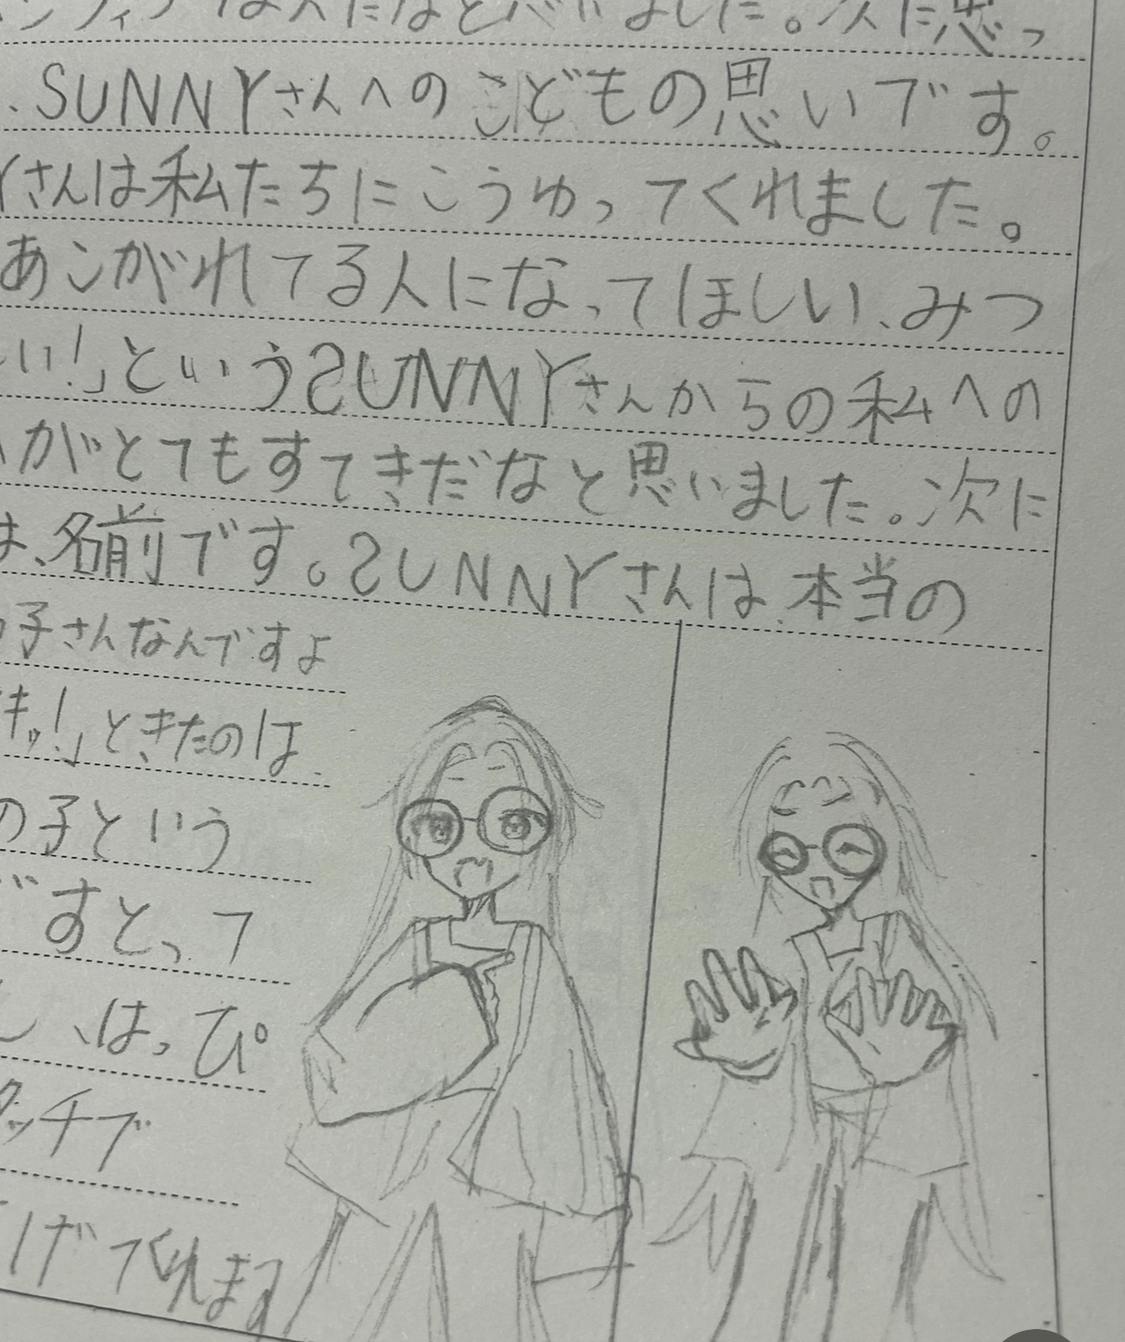 な人だなと思いました。次に思っ
、SUNNYさんへのこどもの思いです。
Yさんは私たちにこうゆってくれました。
あこがれてる人になってほしい、みつ
い!」というSUNNYさんからの私への
がとてもすてきだなと思いました。次に
は、名前です。SUNNYさんは、本当の
子さんなんですよ
キッ!」ときたのは
の子という
ずすと、って
、はっぴ
タッチブ
げてくれます